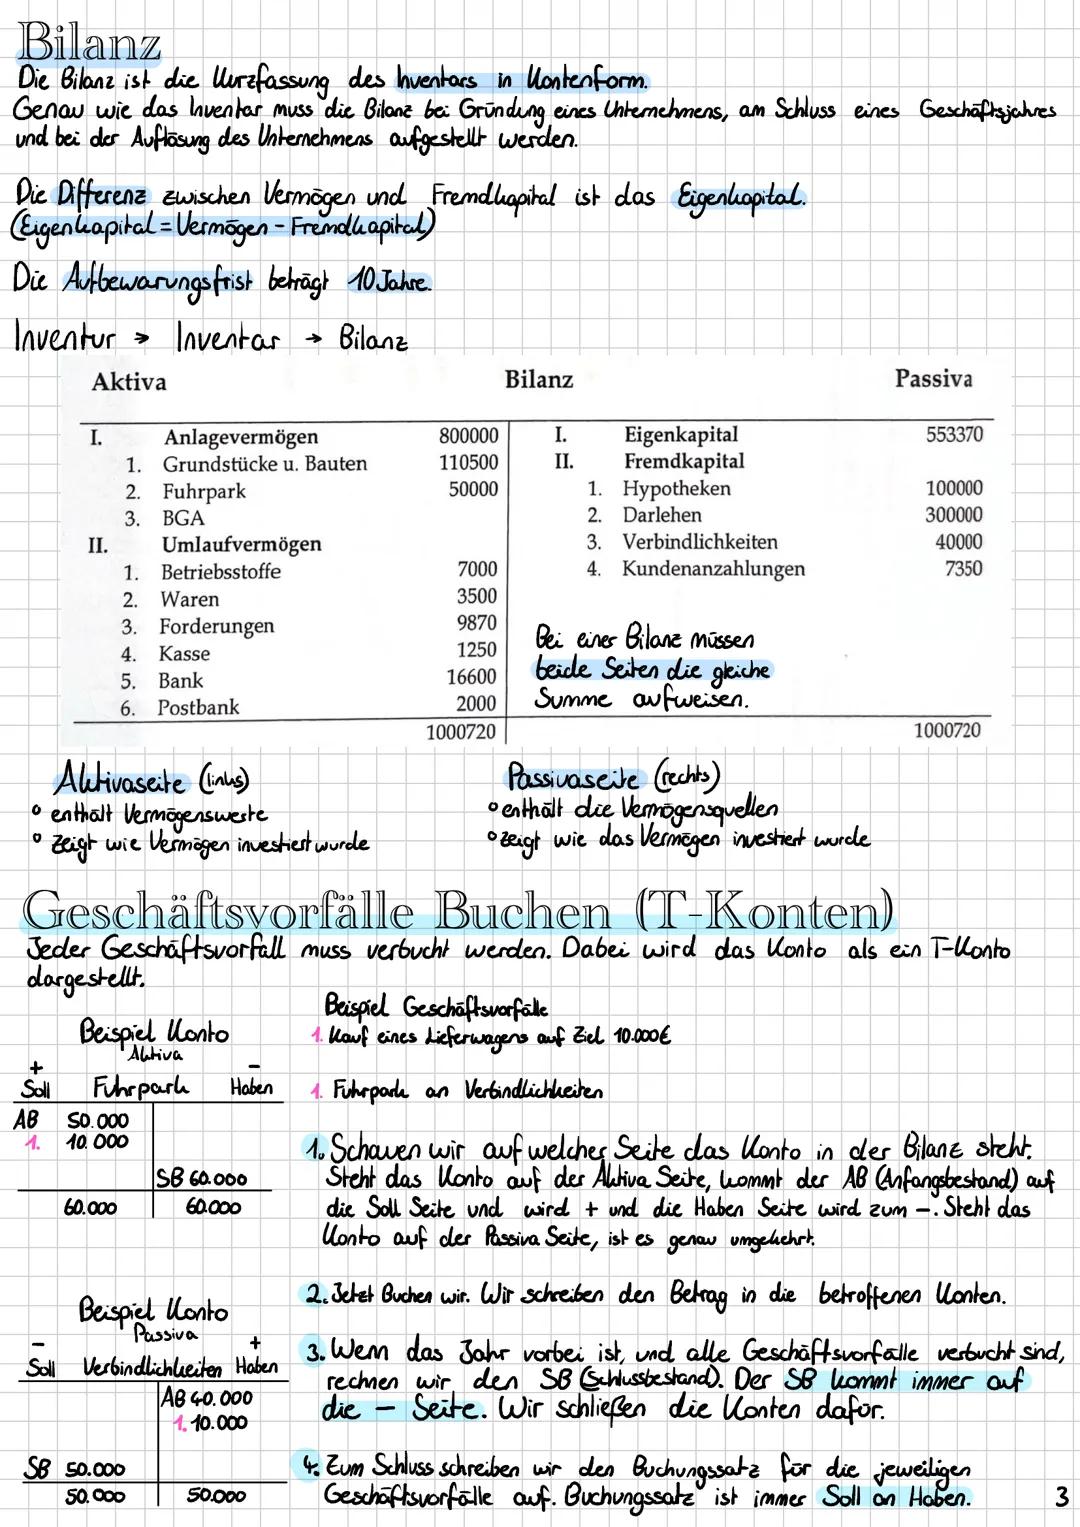 Bilanz
Die Bilanz ist die Kurzfassung des Inventars in Kontenform.
Genau wie das Inventar muss die Bilanz bei Gründung eines Unternehmens, am Schluss eines Geschäftsjahres
und bei der Auflösung des Unternehmens aufgestellt werden.
Die Differenz zwischen Vermögen und Fremdkapital ist das Eigenkapital.
(Eigenkapital = Vermögen - Fremdkapital)
Die Aufbewarungsfrist beträgt 10 Jahre.
Inventur → Inventar → Bilanz
Aktiva Bilanz Passiva
I. Anlagevermögen 800000 I. Eigenkapital 553370
1. Grundstücke u. Bauten 110500 II. Fremdkapital
2. Fuhrpark 50000 1. Hypotheken 100000
3. BGA 2. Darlehen 300000
II. Umlaufvermögen 3. Verbindlichkeiten 40000
1. Betriebsstoffe 7000 4. Kundenanzahlungen 7350
2. Waren 3500
3. Forderungen 9870
4. Kasse 1250
5. Bank 16600
6. Postbank 2000
1000720 1000720
Bei einer Bilanz müssen
beide Seiten die gleiche
Summe aufweisen.
Aktivaseite (links)
° enthält Vermögenswerte
° zeigt wie Vermögen investiert wurde
Passivaseite (rechts)
° enthält die Vermögensquellen
° zeigt wie das Vermögen investiert wurde
Geschäftsvorfälle Buchen (T-Konten)
Jeder Geschäftsvorfall muss verbucht werden. Dabei wird das Konto als ein T-Konto
dargestellt.
Beispiel Konto
Aktiva
+ -
Soll Fuhrpark Haben
AB 50.000
1. 10.000
SB 60.000
60.000 60.000
Beispiel Geschäftsvorfälle
1. Kauf eines Lieferwagens auf Ziel 10.000€
1. Fuhrpark an Verbindlichkeiten
1. Schauen wir auf welcher Seite das Konto in der Bilanz steht.
Steht das Konto auf der Aktiva Seite, kommt der AB (Anfangsbestand) auf
die Soll Seite und wird + und die Haben Seite wird zum -. Steht das
Konto auf der Passiva Seite, ist es genau umgekehrt.
2. Jetzt Buchen wir. Wir schreiben den Betrag in die betroffenen Konten.
Beispiel Konto
Passiva
- +
Soll Verbindlichkeiten Haben
AB 40.000
1. 10.000
SB 50.000
50.000 50.000
3. Wenn das Jahr vorbei ist, und alle Geschäftsvorfälle verbucht sind,
rechnen wir den SB (Schlussbestand). Der SB kommt immer auf
die - Seite. Wir schließen die Konten dafür.
4. Zum Schluss schreiben wir den Buchungssatz für die jeweiligen
Geschäftsvorfälle auf. Buchungssatz ist immer Soll an Haben.
3